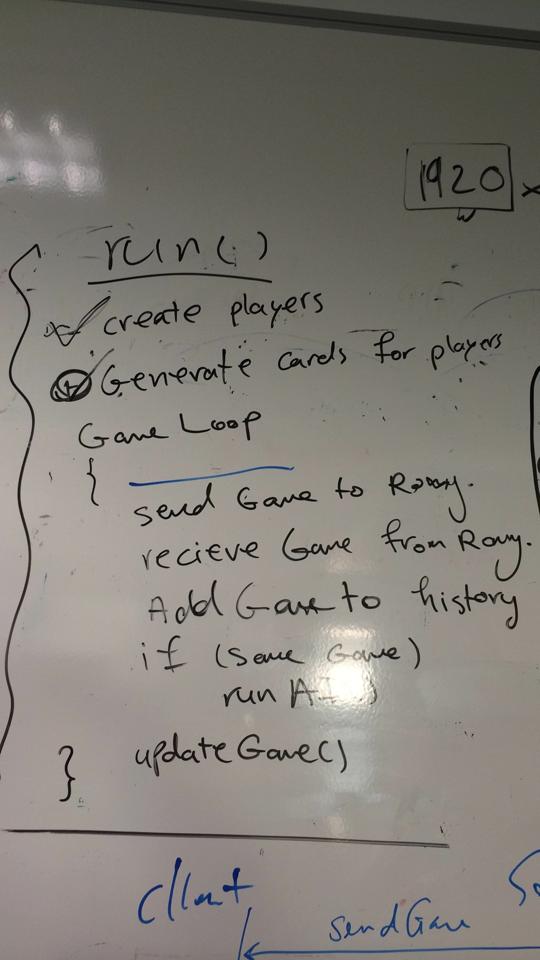 1920
run()
create players
Generate cards for players
Game Loop
{
send Game to Romy.
recieve Game from Romy.
Add Game to history
if (same Game)
run AI
updateGame()
}
client
sendGame